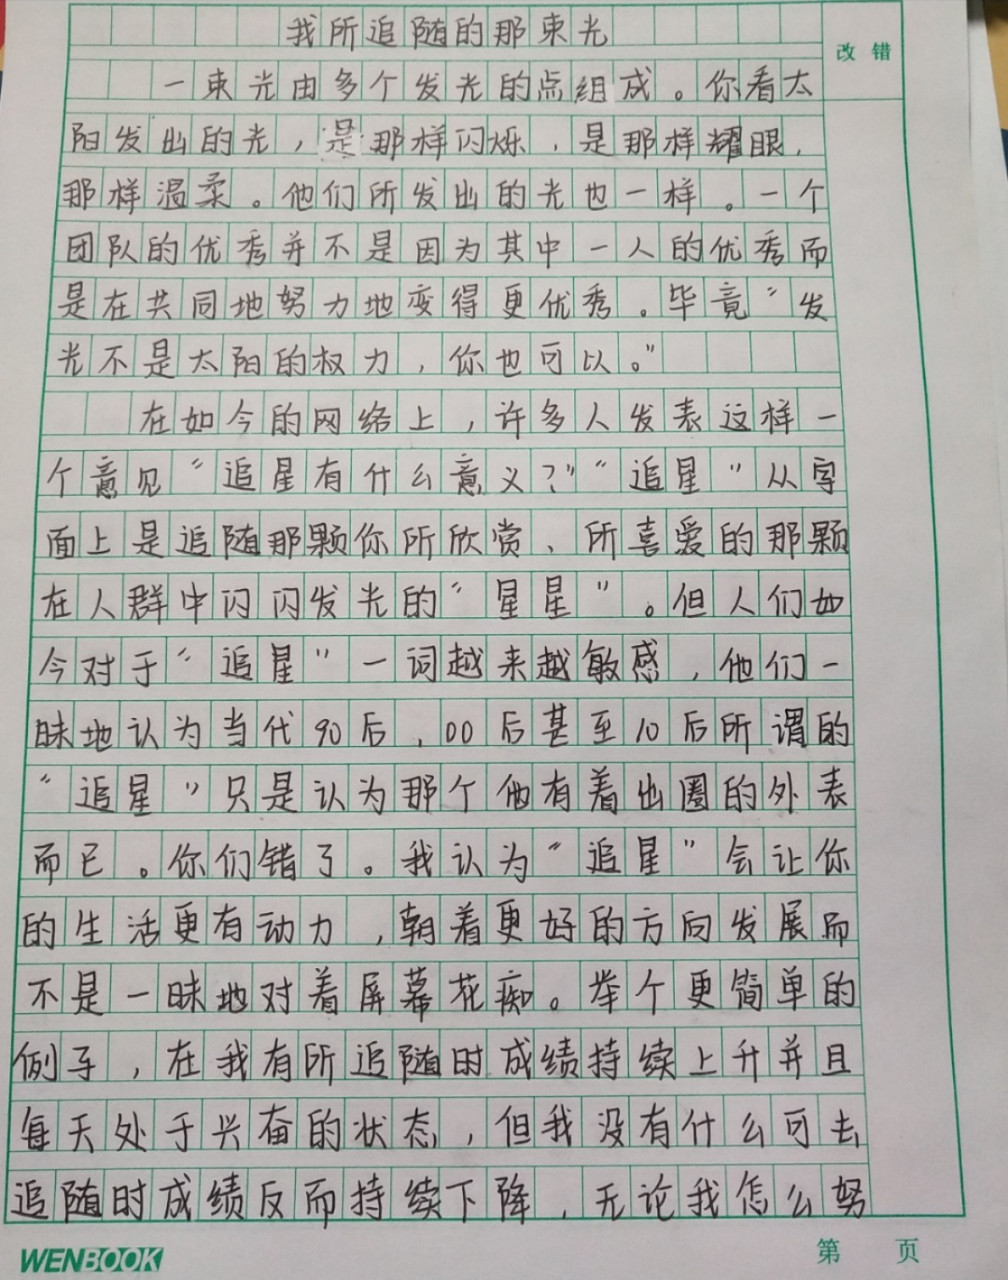 我所追随的那束光
改错
一束光由多个发光的点组成。你看太
阳发出的光，是那样闪烁，是那样耀眼，
那样温柔。他们所发出的光也一样。一个
团队的优秀并不是因为其中一人的优秀而
是在共同地努力地变得更优秀。毕竟“发
光不是太阳的权力，你也可以。”
在如今的网络上，许多人发表这样一
个意见“追星有什么意义？”“追星”从字
面上是追随那颗你所欣赏、所喜爱的那颗
在人群中闪闪发光的“星星”。但人们如
今对于“追星”一词越来越敏感，他们一
昧地认为当代90后，00后甚至10后所谓的
“追星”只是认为那个他有着出圈的外表
而已。你们错了。我认为“追星”会让你
的生活更有动力，朝着更好的方向发展而
不是一昧地对着屏幕花痴。举个更简单的
例子，在我有所追随时成绩持续上升并且
每天处于兴奋的状态，但我没有什么可去
追随时成绩反而持续下降，无论我怎么努
WENBOOK
第 页